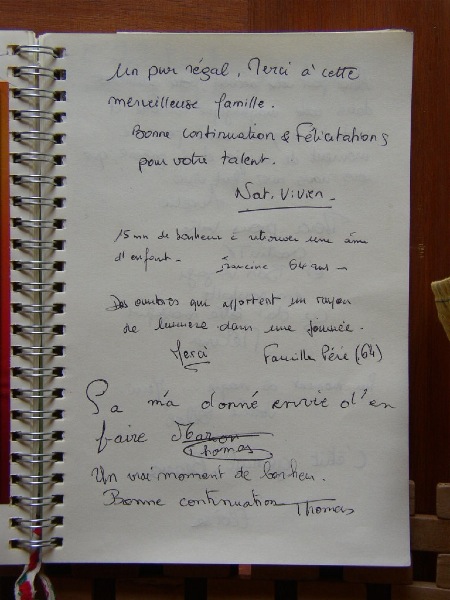 Un pur régal. Merci à cette
merveilleuse famille.
Bonne continuation & Félicitations
pour votre talent.
Nat. Vivien
15 mn de bonheur à retrouver une âme
d'enfant. Francine 64 ans
Des ombres qui apportent un rayon
de lumière dans une journée.
Merci Famille Péré (64)
Ça m'a donné envie d'en
faire
Thomas
Un vrai moment de bonheu.
Bonne continuation Thomas